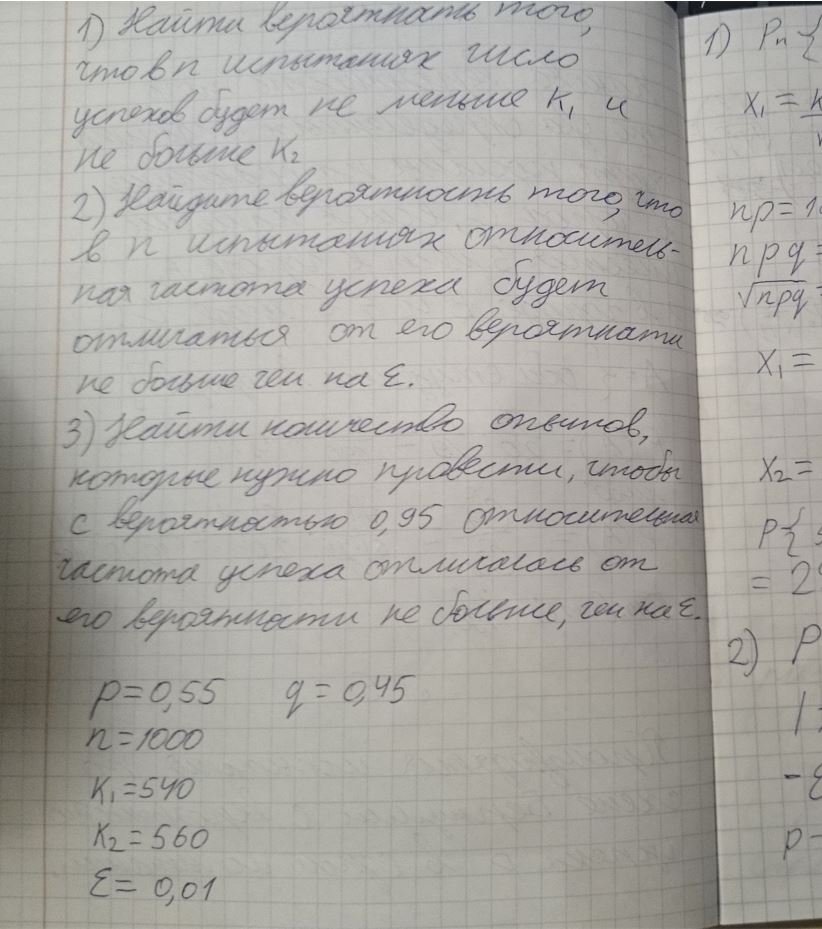 1) Найти вероятность того,
что в n испытаниях число
успехов будет не меньше K₁ и
не больше K₂
2) Найдите вероятность того, что
в n испытаниях относитель-
ная частота успеха будет
отличаться от его вероятности
не больше чем на ε.
3) Найти количество опытов,
которые нужно провести, чтобы
с вероятностью 0,95 относительная
частота успеха отличалась от
его вероятности не больше, чем на ε.
p=0,55 q=0,45
n=1000
K₁=540
K₂=560
ε=0,01
1) Pₙ{
x₁=
np=
npq=
√npq=
x₁=
x₂=
P{
= 2
2) P
-ε
p-